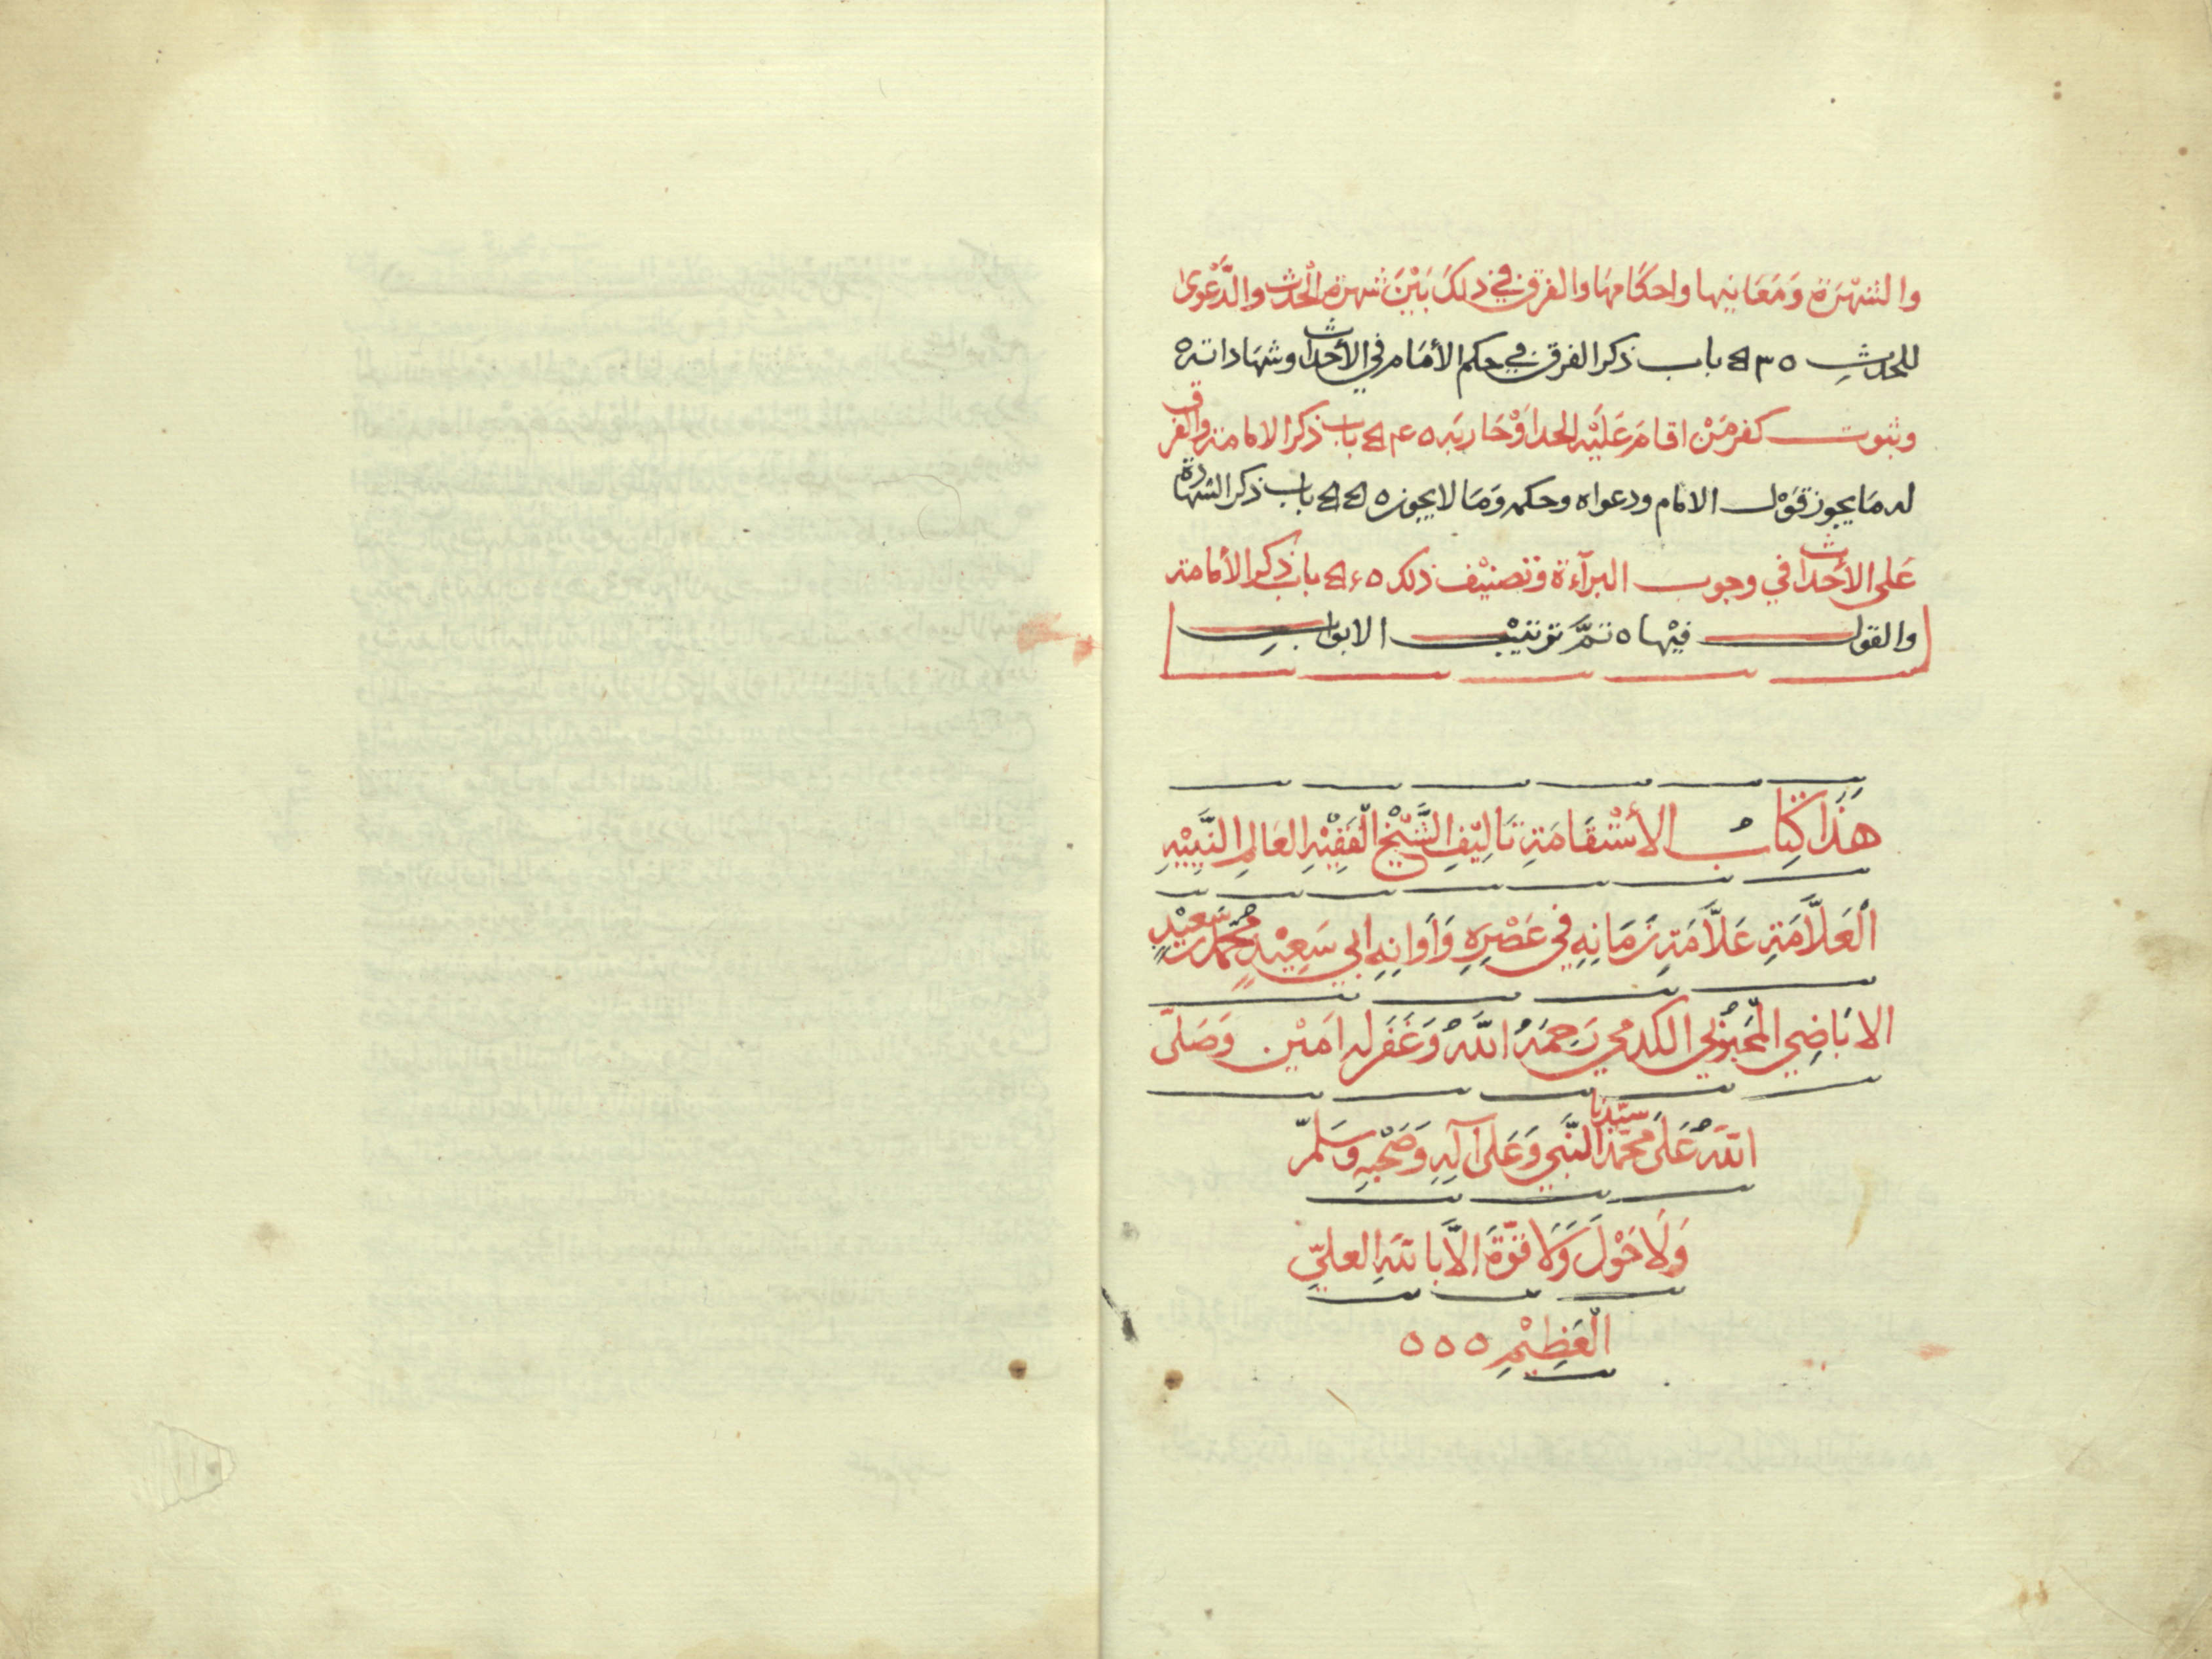 والشهْرَة وَمَعَانيها واحكامهَا والفرق في ذلكَ بَيْنَ شهرة الْحدث والدَّعْوى
للمحْدِثِ ٥ ٥٣ باب ذكر الفرق في حكم الأمَام في الأحْداث وشهَاداته ٥
وثبوت كفر مَنْ اقامَ عَلَيْه الحد اَوْ حَاربَه ٥ ٥٤ باب ذكر الامامة والفرق
له مَا يجوز قَوْل الامام ودعواه وحكمه وَمَا لا يجوز ٥ ٥٥ باب ذكر الشهادة
عَلى الأحْداث في وجوب البرآءة وتصنيْف ذلك ٥ ٥٦ باب ذكر الأمامة
والقول فيْها ٥ تمَّ ترتيْب الابوابِ
هذَا كِتابُ الأسْتقَامَةِ تَالِيْفِ الشَّيْخِ الْفَقِيْهِ العَالِمِ النَّبِيْهِ
الْعَلَّامَةِ عَلَّامَةِ زَمَانِهِ في عَصْرِهِ وَاَوَانِهِ ابي سَعِيْدٍ مُحَمَّد بن سَعِيْدٍ
الابَاضِي الْمَحبُوْبي الكدمي رَحِمَهُ اللَّهُ وَغَفَرَ له امَيْن وَصَلى
اللَّهُ عَلىَ سيّدنا محَمّد النَّبي وَعَلى آلِهِ وَصَحْبِهِ وَسَلمّ
وَلَا حَوْلَ وَلَا قوَّةَ الَّا باللهِ العليِّ
الْعَظِيْمِ ٥ ٥ ٥